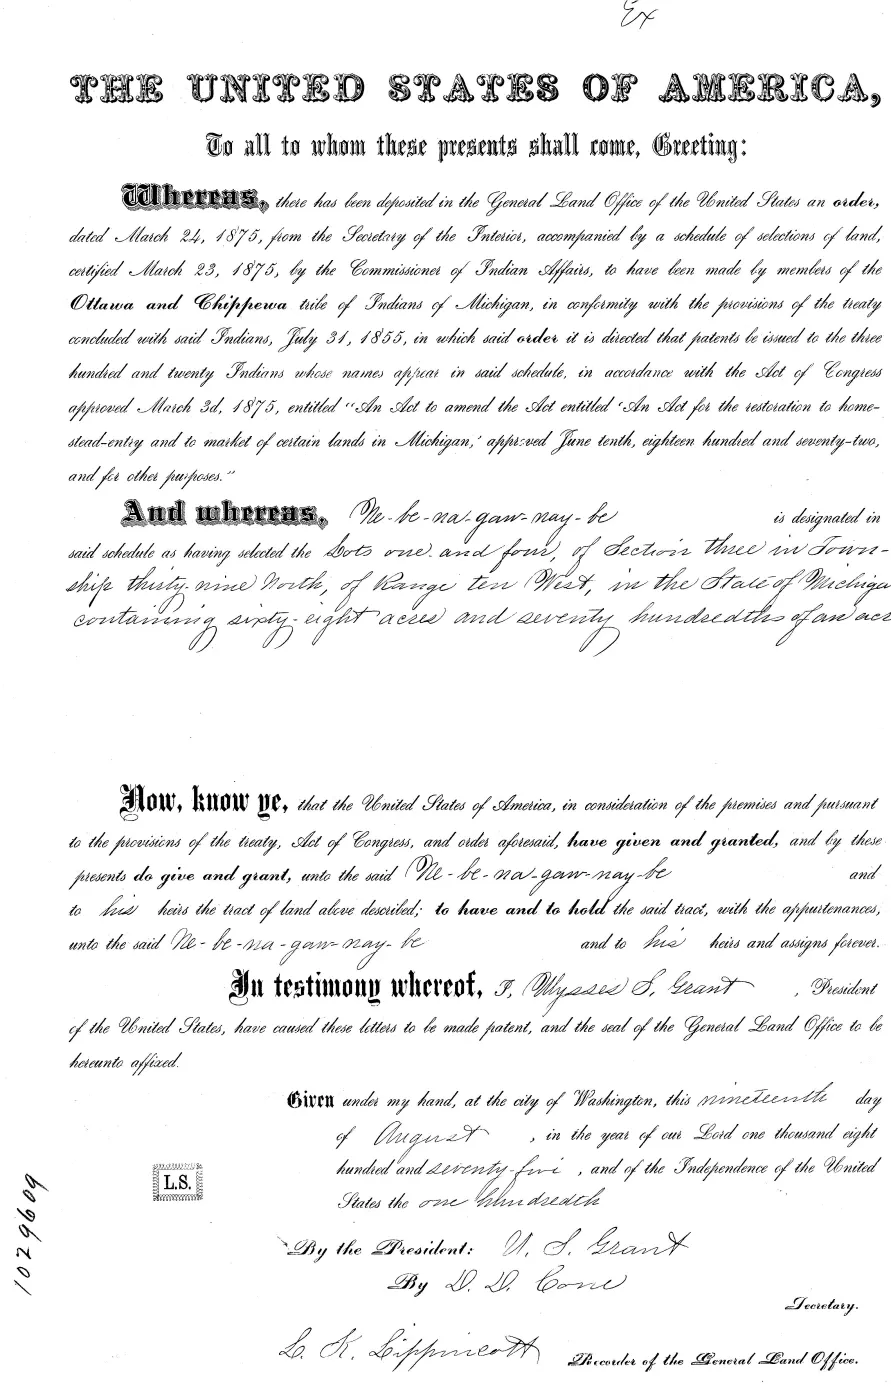 Ex
THE UNITED STATES OF AMERICA,
To all to whom these presents shall come, Greeting:
Whereas, there has been deposited in the General Land Office of the United States an order,
dated March 24, 1875, from the Secretary of the Interior, accompanied by a schedule of selections of land,
certified March 23, 1875, by the Commissioner of Indian Affairs, to have been made by members of the
Ottawa and Chippewa tribe of Indians of Michigan, in conformity with the provisions of the treaty
concluded with said Indians, July 31, 1855, in which said order it is directed that patents be issued to the three
hundred and twenty Indians whose names appear in said schedule, in accordance with the Act of Congress
approved March 3d, 1875, entitled "An Act to amend the Act entitled 'An Act for the restoration to home-
stead-entry and to market of certain lands in Michigan,' approved June tenth, eighteen hundred and seventy-two,
and for other purposes."
And whereas, Ne-be-na-gaw-nay-be is designated in
said schedule as having selected the Lots one and four, of Section three in Town-
ship thirty-nine North, of Range ten West, in the State of Michiga
containing sixty-eight acres and seventy hundredths of an acr
Now, know ye, that the United States of America, in consideration of the premises and pursuant
to the provisions of the treaty, Act of Congress, and order aforesaid, have given and granted, and by these
presents do give and grant, unto the said Ne-be-na-gaw-nay-be and
to his heirs the tract of land above described; to have and to hold the said tract, with the appurtenances,
unto the said Ne-be-na-gaw-nay-be and to his heirs and assigns forever.
In testimony whereof, I, Ulysses S. Grant, President
of the United States, have caused these letters to be made patent, and the seal of the General Land Office to be
hereunto affixed.
Given under my hand, at the city of Washington, this nineteenth day
of August, in the year of our Lord one thousand eight
hundred and seventy-five, and of the Independence of the United
States the one hundredth
L.S.
1029609
By the President: U. S. Grant
By D. D. Cone
Secretary.
L. K. Lippincott Recorder of the General Land Office.